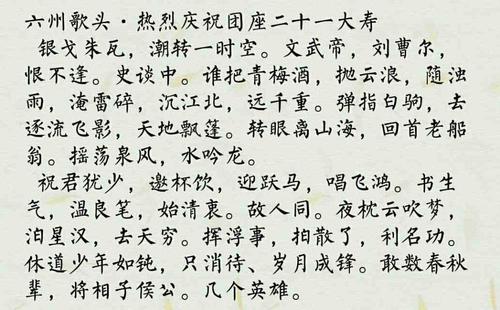 六州歌头·热烈庆祝团座二十一大寿
银戈朱瓦，潮转一时空。文武帝，刘曹尔，
恨不逢。史谈中。谁把青梅酒，抛云浪，随浊
雨，淹雷碎，沉江北，远千重。弹指白驹，去
逐流飞影，天地飘蓬。转眼离山海，回首老船
翁。摇荡泉风，水吟龙。
祝君犹少，邀杯饮，迎跃马，唱飞鸿。书生
气，温良笔，始清衷。故人同。夜枕云吹梦，
泊星汉，去天穷。挥浮事，拍散了，利名功。
休道少年如钝，只消待、岁月成锋。敢数春秋
辈，将相子侯公。几个英雄。